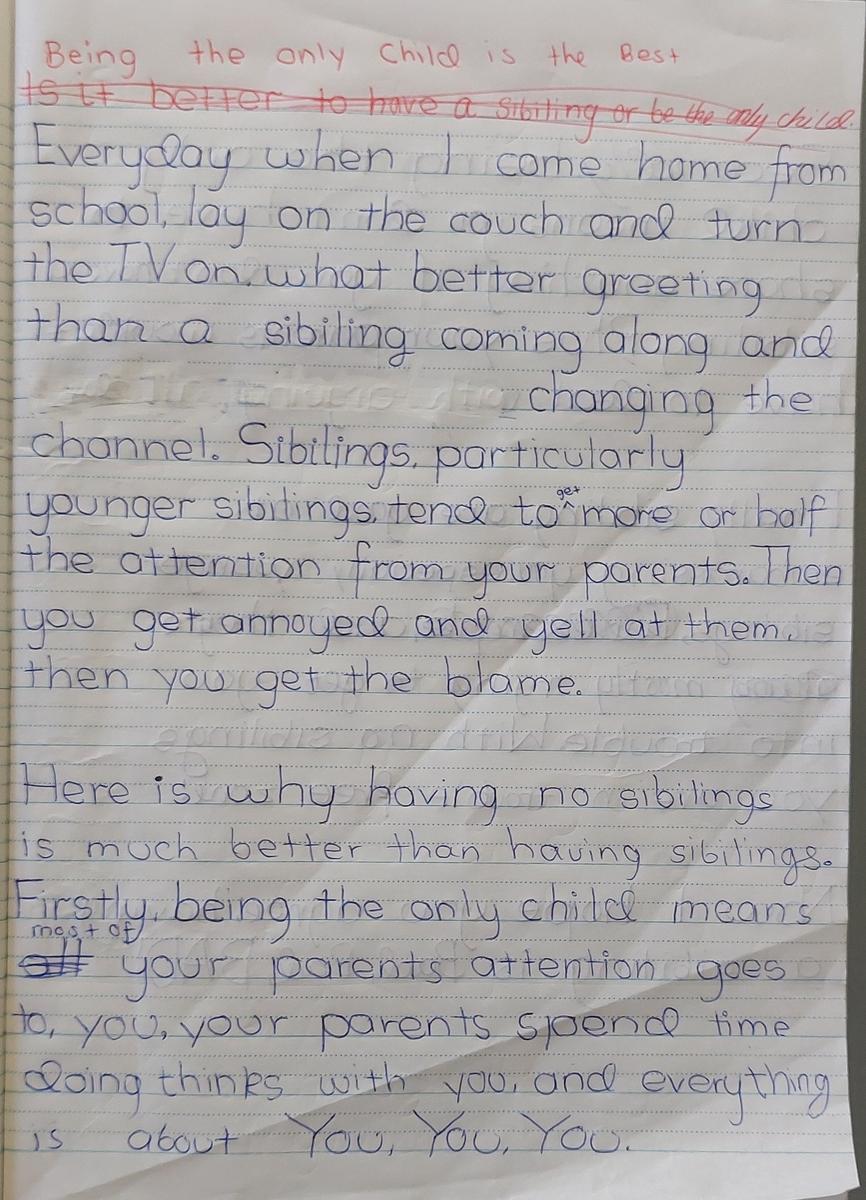 Being the only Child is the Best
Is it better to have a sibiling or be the only child.
Everyday when I come home from
school, lay on the couch and turn
the TV on, what better greeting
than a sibiling coming along and
changing the
channel. Sibilings, particularly
younger sibilings, tend to get more or half
the attention from your parents. Then
you get annoyed and yell at them,
then you get the blame.
Here is why having no sibilings
is much better than having sibilings.
Firstly, being the only child means
most of
all your parents attention goes
to, you, your parents spend time
doing thinks with you, and everything
is about You, You, You.